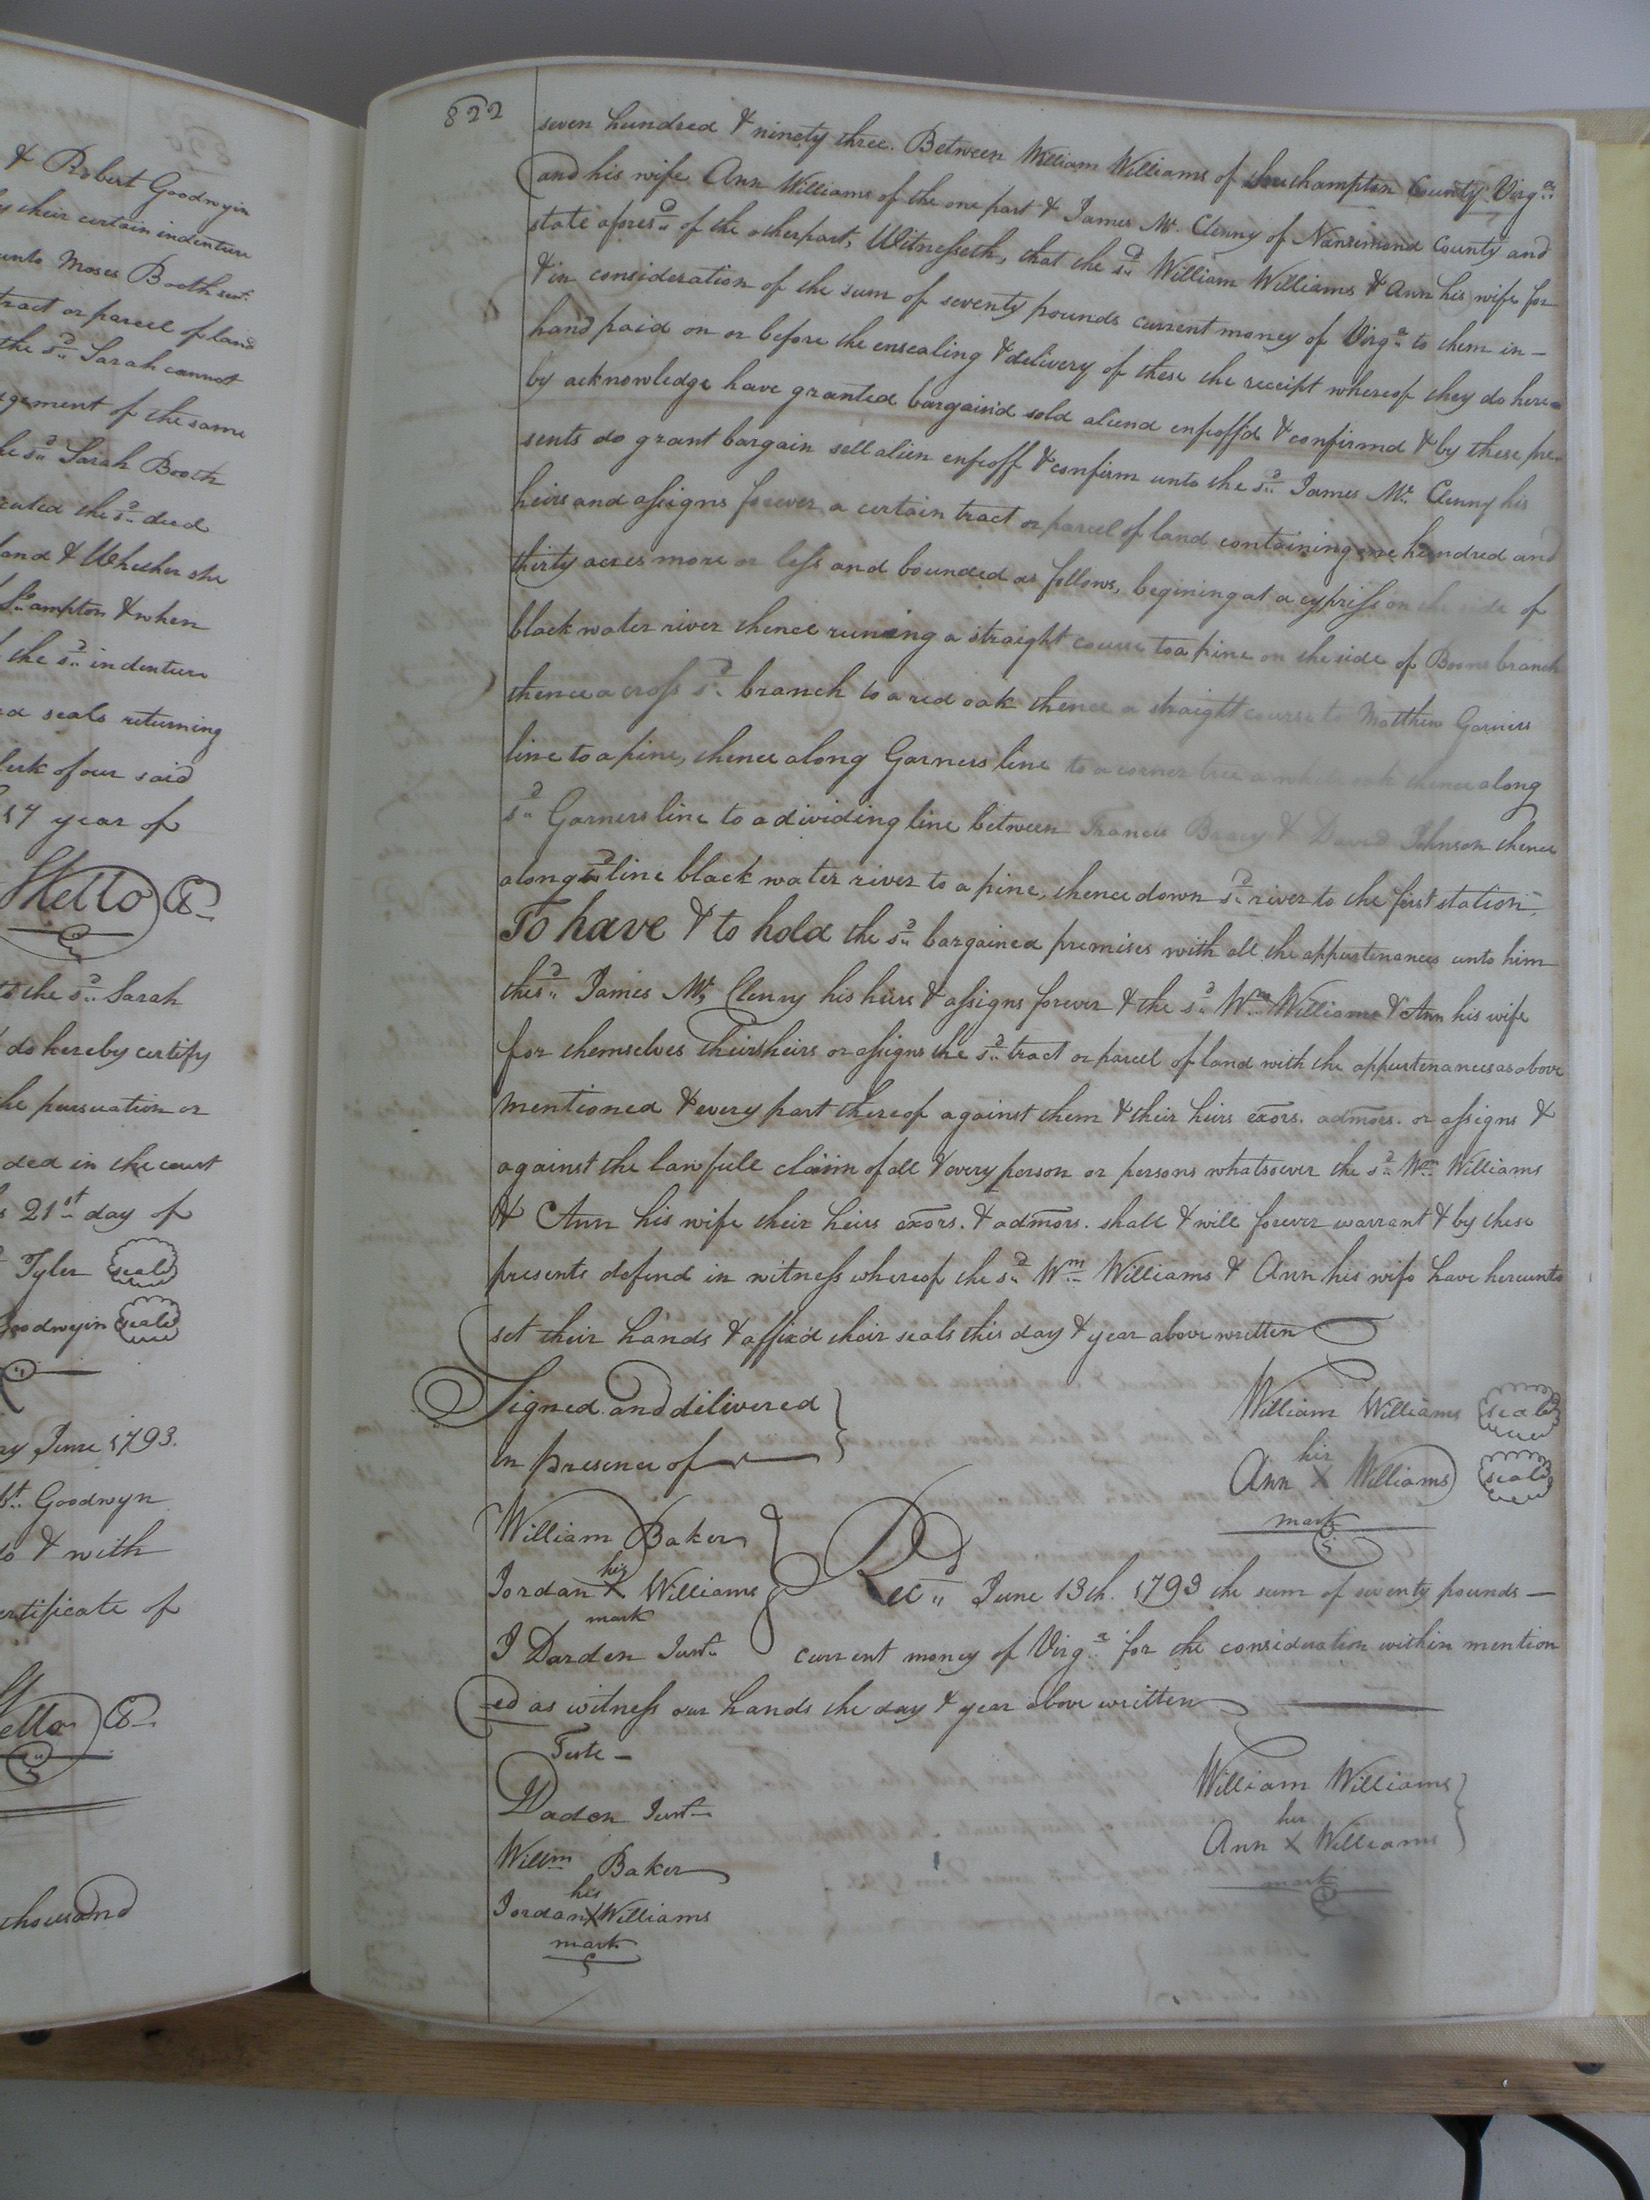 & Robert Goodwyin
y their certain indenture
unto Moses Booth senr.
tract or parcel of land
the sd. Sarah cannot
gement of the same
he sd. Sarah Booth
cuted the sd. deed
land & Whether she
Sampton & when
the sd. indenture
nd seals returning
lerk of our said
17 year of
Kello
to the sd. Sarah
do hereby certify
he persuation or
ded in the court
s 21st. day of
Tyler seal
Goodwyin seal
ay June 1793.
bt. Goodwyn
to & with
ertificate of
ello
thousand
822
seven hundred & ninety three. Between William Williams of Southampton County Virga.
and his wife Ann Williams of the one part & James Mc. Clenny of Nansemond County and
state aforesd. of the other part, Witnesseth, that the sd. William Williams & Ann his wife for
& in consideration of the sum of seventy pounds current money of Virga. to them in-
hand paid on or before the ensealing & delivery of these the receipt whereof they do here=
by acknowledge have granted bargain'd sold aliend enfeoff'd & confirmd & by these pre=
sents do grant bargain sell alien enfeoff & confirm unto the sd. James Mc. Clenny his
heirs and assigns forever a certain tract or parcel of land containing one hundred and
thirty acres more or less and bounded as follows, begining at a cypriss on the side of
black water river thence runing a straight course to a pine on the side of Boons branch
thence a cross sd. branch to a red oak thence a straight course to Matthew Garners
line to a pine, thence along Garners line to a corner tree a white oak thence along
sd. Garners line to a dividing line between Francis Bracy & David Johnson thence
along sd line black water river to a pine, thence down sd. river to the first station.
To have & to hold the sd. bargained premises with all the appurtenances unto him
the sd. James Mc. Clenny his heirs & assigns forever & the sd. Wm. Williams & Ann his wife
for themselves their heirs or assigns the sd. tract or parcel of land with the appurtenances as above
mentioned & every part thereof against them & their heirs exors. admors. or assigns &
against the lawfull claim of all & every person or persons whatsoever the sd. Wm. Williams
& Ann his wife their heirs exors. & admors. shall & will forever warrant & by these
presents defend in witness whereof the sd. Wm. Williams & Ann his wife have hereunto
set their hands & affix'd their seals this day & year above written
Signed and delivered William Williams seal
in presence of
her
Ann X Williams seal
mark
William Baker
his
Jordan X Williams Recd. June 13th. 1793 the sum of seventy pounds —
mark
J Darden Junr. current money of Virga. for the consideration within mention
=ed as witness our hands the day & year above written
Teste —
J Daden Junr. William Williams
her
Willm. Baker Ann X Williams
mark
his
Jordan X Williams
mark